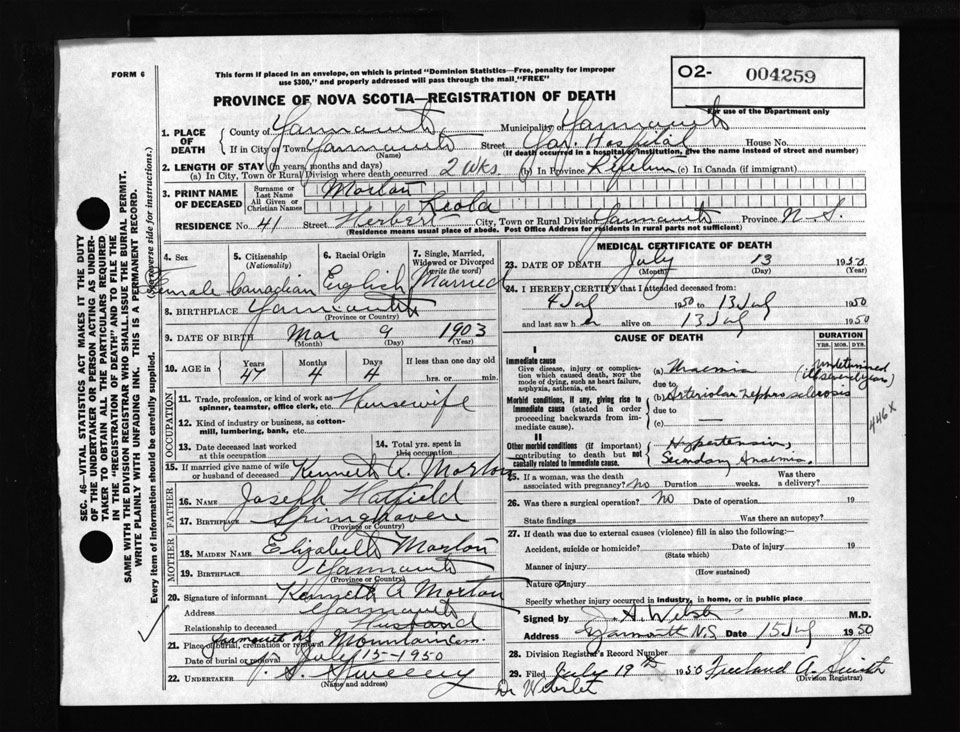 FORM 6
This form if placed in an envelope, on which is printed "Dominion Statistics—Free, penalty for improper
use $300," and properly addressed will pass through the mail, "FREE"
O2- 004259
For use of the Department only
PROVINCE OF NOVA SCOTIA—REGISTRATION OF DEATH
1. PLACE OF DEATH
County of Yarmouth Municipality of Yarmouth
If in City or Town Yarmouth Street Yar. Hospital House No.
(Name) (If death occurred in a hospital or institution, give the name instead of street and number)
2. LENGTH OF STAY (in years, months and days)
(a) In City, Town or Rural Division where death occurred 2 Wks. (b) In Province Lifetime (c) In Canada (if immigrant)
3. PRINT NAME OF DECEASED
Surname or Last Name Morton
All Given or Christian Names Leola
RESIDENCE No. 41 Street Herbert City, Town or Rural Division Yarmouth Province N-S.
(Residence means usual place of abode. Post Office Address for residents in rural parts not sufficient)
4. Sex 5. Citizenship (Nationality) 6. Racial Origin 7. Single, Married, Widowed or Divorced (write the word)
Female Canadian English Married
8. BIRTHPLACE Yarmouth
(Province or Country)
9. DATE OF BIRTH Mar 9 1903
(Month) (Day) (Year)
10. AGE in Years Months Days If less than one day old
47 4 4 hrs. or min.
OCCUPATION
11. Trade, profession or kind of work as spinner, teamster, office clerk, etc. Housewife
12. Kind of industry or business, as cotton-mill, lumbering, bank, etc.
13. Date deceased last worked at this occupation
14. Total yrs. spent in this occupation
15. If married give name of wife or husband Kenneth A. Morton
FATHER
16. NAME Joseph Hatfield
17. BIRTHPLACE Springhaven
(Province or Country)
MOTHER
18. MAIDEN NAME Elizabeth Morton
19. BIRTHPLACE Yarmouth
(Province or Country)
20. Signature of informant Kenneth A Morton
Address Yarmouth
Relationship to deceased Husband
21. Place of burial, cremation or removal Yarmouth NS Mountain Cem.
Date of burial or removal July 15-1950
22. UNDERTAKER J. S. Sweeny
(Name and address)
MEDICAL CERTIFICATE OF DEATH
23. DATE OF DEATH July 13 1950
(Month) (Day) (Year)
24. I HEREBY CERTIFY that I attended deceased from:
4 July 1950 to 13 July 1950
and last saw her alive on 13 July 1950
CAUSE OF DEATH
DURATION
YRS. MOS. DYS.
I
Immediate cause
Give disease, injury or complication which caused death, NOT the mode of dying, such as heart failure, asphyxia, asthenia, etc.
(a) Uraemia
due to
undetermined
Morbid conditions, if any, giving rise to immediate cause (stated in order proceeding backwards from immediate cause).
(b) Arteriolar Nephrosclerosis
due to
(c)
446X
II
Other morbid conditions (if important) contributing to death but not causally related to immediate cause.
Hypertension,
Secondary Anaemia.
25. If a woman, was the death associated with pregnancy? No Duration weeks. Was there a delivery?
26. Was there a surgical operation? No Date of operation 19
State findings Was there an autopsy?
27. If death was due to external causes (violence) fill in also the following:—
Accident, suicide or homicide? Date of injury 19
(State which)
Manner of injury
(How sustained)
Nature of injury
Specify whether injury occurred in industry, in home, or in public place
Signed by M.D.
Address Yarmouth N.S. Date 15 July 1950
28. Division Registrar's Record Number
29. Filed July 19th 1950 Freeland A. Smith
(Division Registrar)
SEC. 46—VITAL STATISTICS ACT MAKES IT THE DUTY
OF THE UNDERTAKER OR PERSON ACTING AS UNDER-
TAKER TO OBTAIN ALL THE PARTICULARS REQUIRED
IN THE "REGISTRATION OF DEATH" AND TO FILE THE
SAME WITH THE DIVISION REGISTRAR WHO SHALL ISSUE THE BURIAL PERMIT.
WRITE PLAINLY WITH UNFADING INK. THIS IS A PERMANENT RECORD.
Every item of information should be carefully supplied. (Reverse side for instructions.)